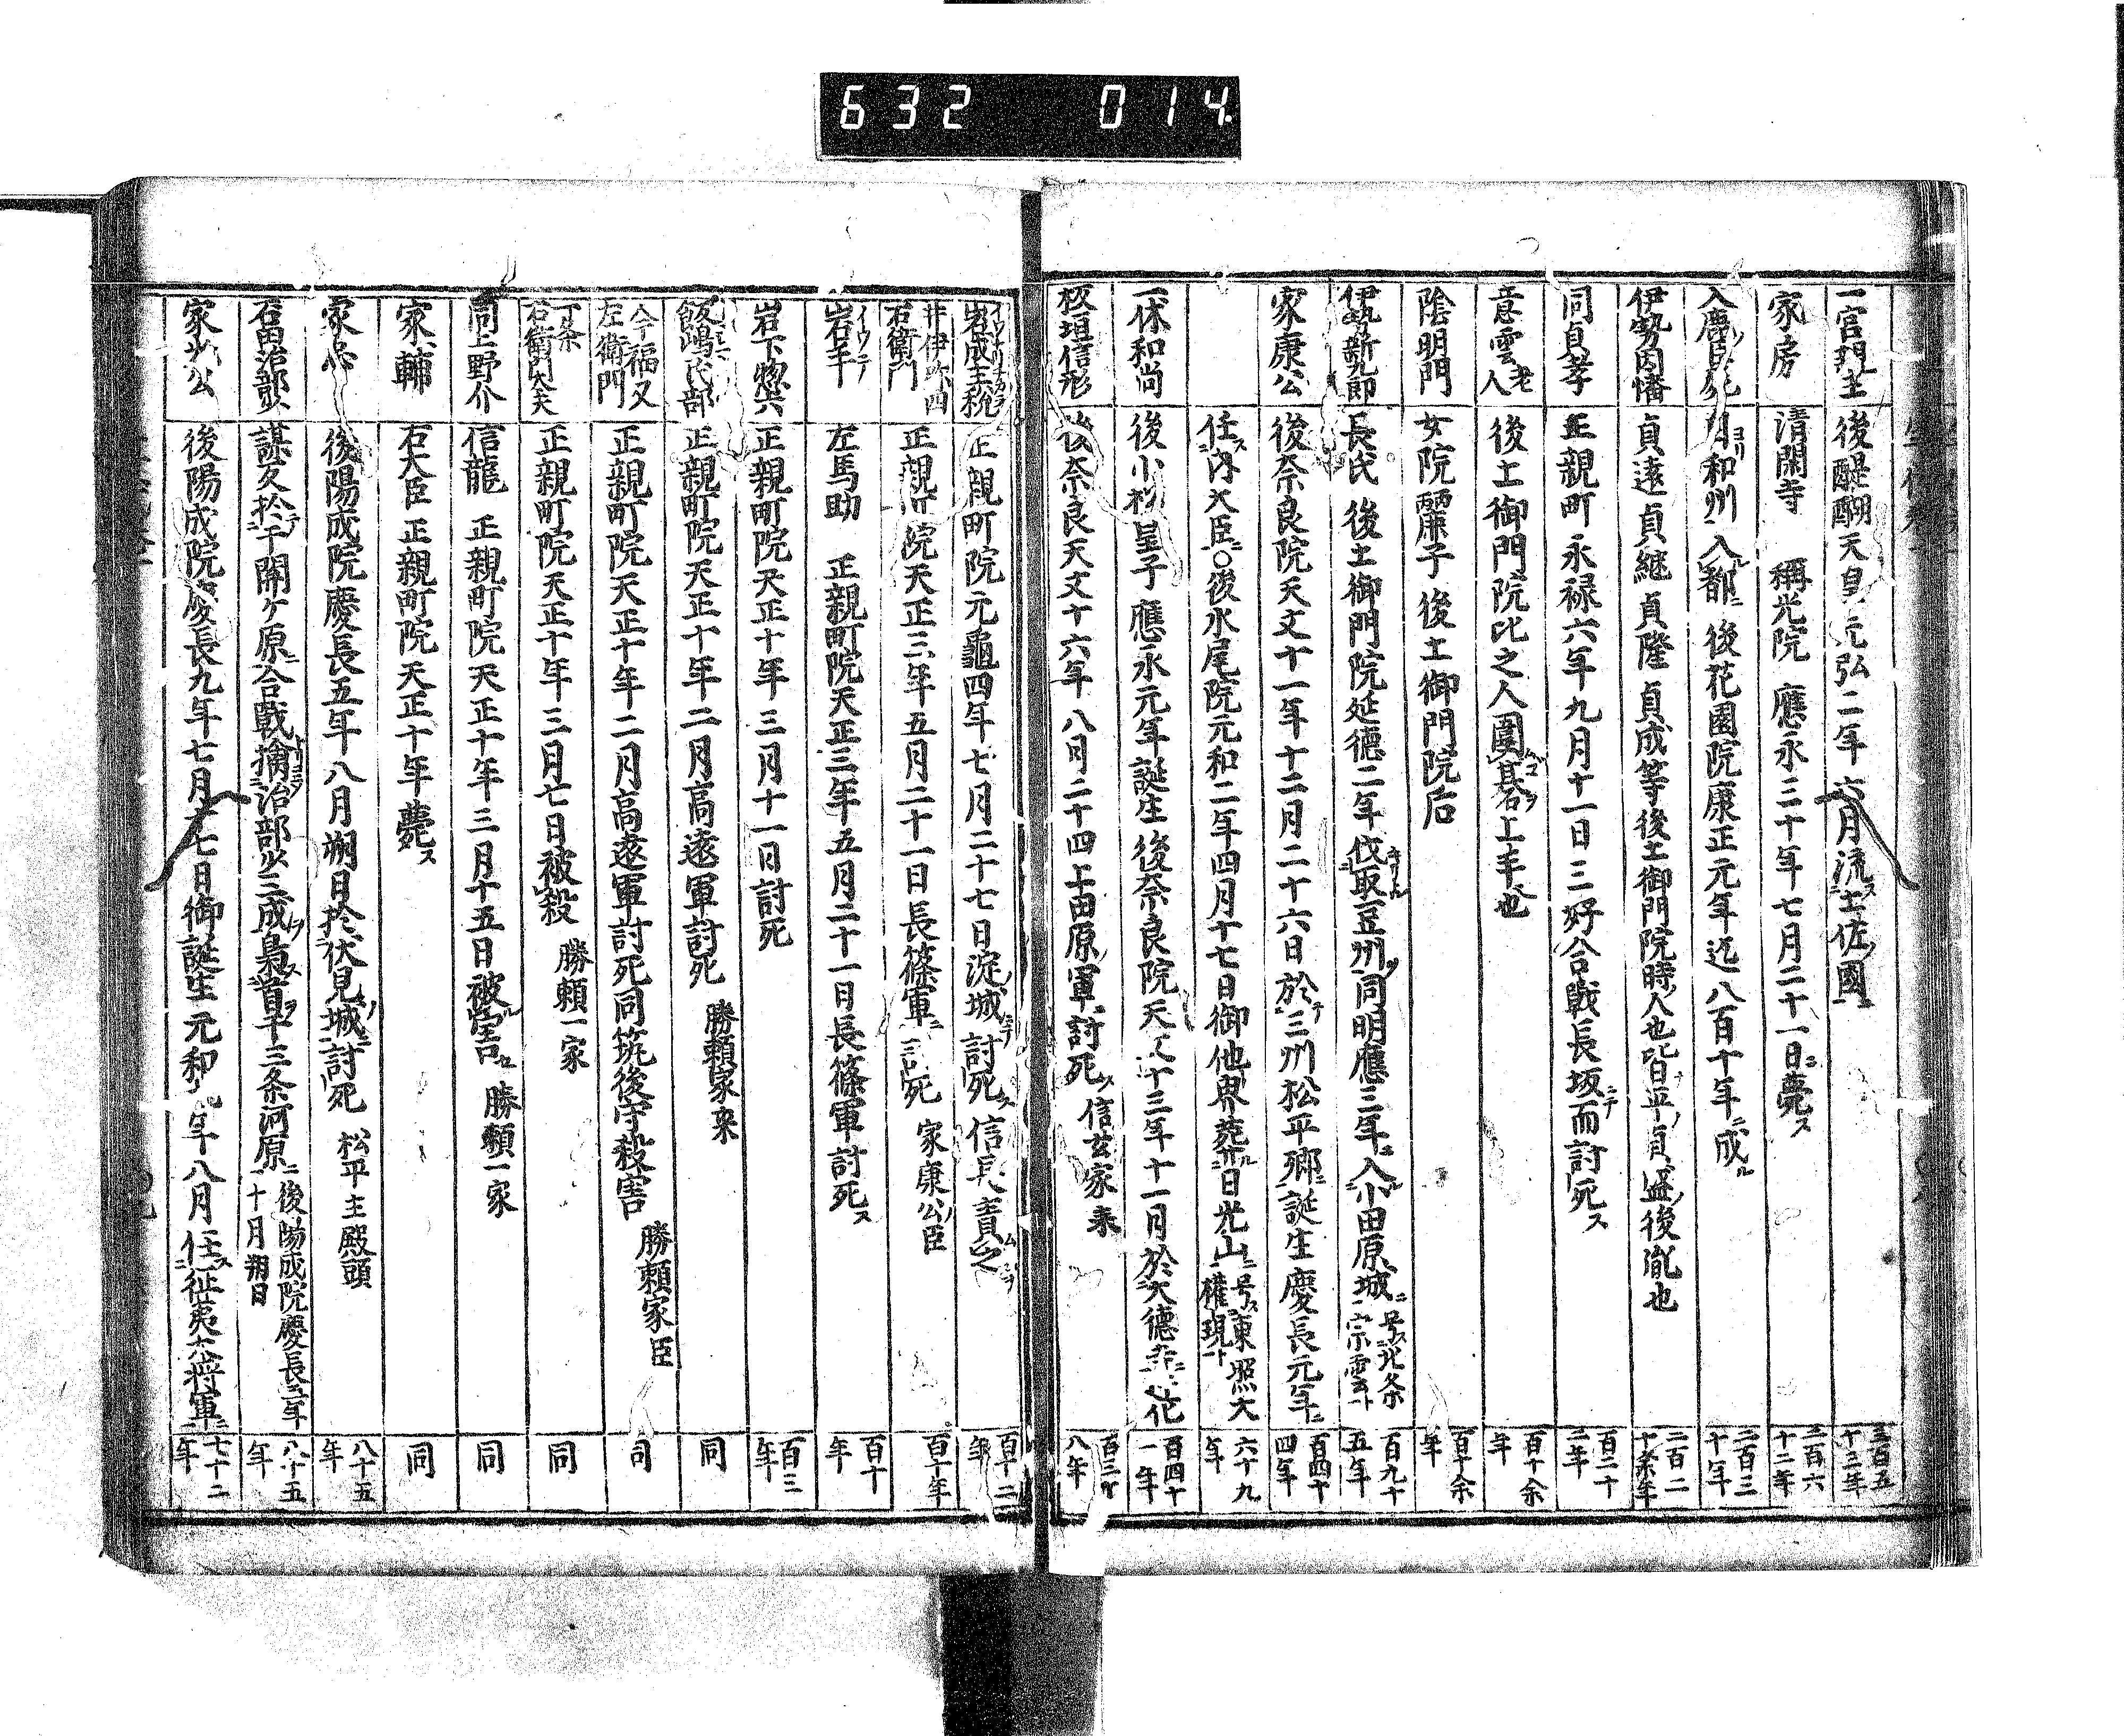 632 014
一宮 後醍醐天皇 元弘二年 流ス土佐ノ國ニ 三百五十三年
家房 清閑寺 稱光院 應永三十年七月二十一日ニ薨ス 三百六十二年
和州 入ル都ニ 後花園院康正元年迄八百十年ニ成ル 二百三十年
伊勢因幡 貞遠 貞継 貞隆 貞成等後土御門院時ノ人也皆平ノ貞盛ノ後胤也 二百二十余年
同貞孝 正親町 永禄六年九月十一日三好合戰長坂ニテ而討死ス 百二十二年
意雲老人 後土御門院比之人圍碁ヲ上手也 百十余年
陰明門 女院麗子 後土御門院后 百十余年
伊勢新九郎 長氏 後土御門院延德二年伐取豆州ヲ同明應三年ニ入小田原ノ城ニ 号ス北条宗雲ト 百九十五年
家康公 後奈良院天文十一年十二月二十六日於テ三州松平郷ニ誕生慶長元年ニ 百四十四年
任ス内大臣ニ〇後水尾院元和二年四月十七日御他界葬ル日光山ニ 号ス東照大權現ト 六十九年
一休和尚 後小松皇子 應永元年誕生後奈良院天文十三年十一月於大德寺ニ 百四十一年
板垣信形 後奈良天文十六年八月二十四上田原ノ軍ニ討死ス 信玄家来 八年
岩成主税 正親町院元龜四年七月二十七日淀ノ城ニテ討死ス 信長責之 百十二年
井伊弥四右衛門 正親町院天正三年五月二十一日長篠軍ニ討死 家康公ノ臣 百十年
岩手 左馬助 正親町院天正三年五月二十一日長篠軍討死ス 百十年
岩下惣六 正親町院天正十年三月十一日討死 百三年
飯嶋民部 正親町院天正十年二月高遠軍討死 勝頼家来 同
今福又左衛門 正親町院天正十年二月高遠軍討死同筑後守殺害 勝頼家臣 同
下条右衛門大夫 正親町院天正十年三月七日被殺 勝頼一家 同
同上野介 信龍 正親町院天正十年三月十五日被ル害セ 勝頼一家 同
家輔 右大臣 正親町院天正十年薨ス 同
家忠 後陽成院慶長五年八月朔日於伏見ノ城ニ討死 松平主殿頭 八十五年
石田治部少 謀反於テ于關ケ原ニ合戰擒治部少三成ヲ梟ス首ヲ于三条河原ニ 後陽成院慶長五年十月朔日 八十五年
家光公 後陽成院慶長九年七月十七日御誕生元和九年八月任ス征夷大將軍ニ 七十二年